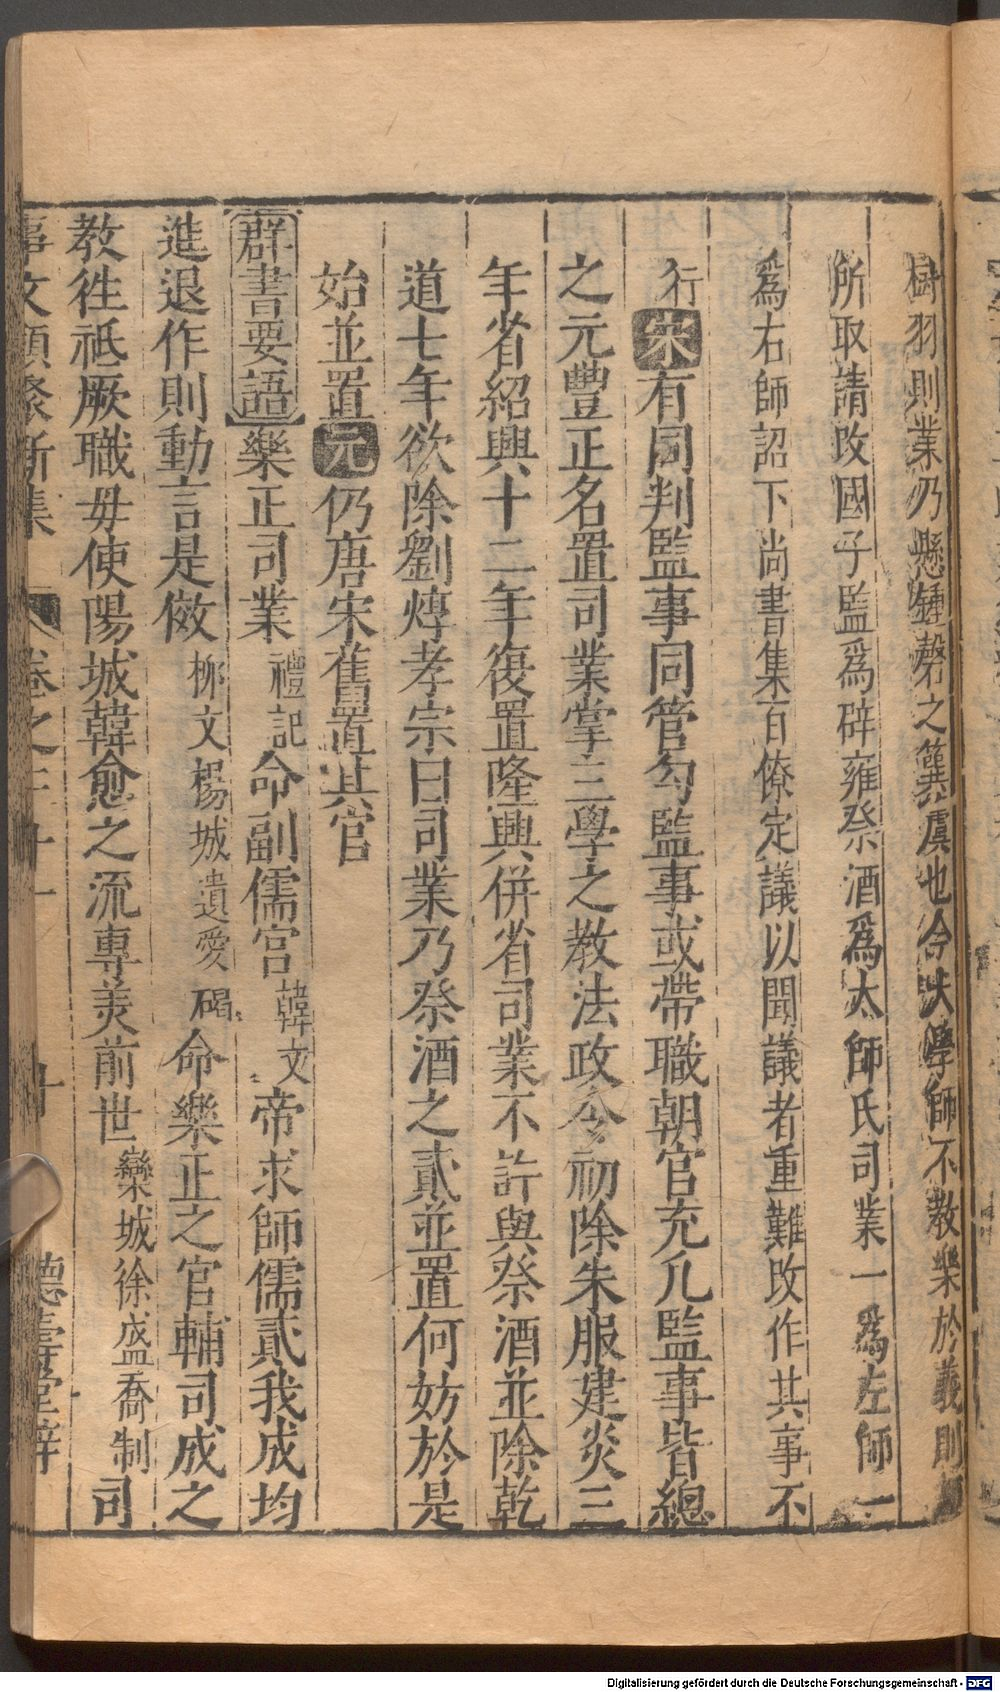 樹羽則業乃懸鍾磬之簨虡也今太學師不教樂於義則
所取請改國子監爲辟雍祭酒爲太師氏司業一爲左師一
爲右師詔下尚書集百僚定議以聞議者重難改作其事不
行宋有同判監事同管勾監事或帶職朝官充凡監事皆總
之元豐正名置司業掌三學之教法政令初除朱服建炎三
年省紹興十二年復置隆興併省司業不許與祭酒並除乾
道七年欲除劉焞孝宗曰司業乃祭酒之貳並置何妨於是
始並置元仍唐宋舊置其官
群書要語樂正司業禮記命副儒宮韓文帝求師儒貳我成均
進退作則動言是傚柳文楊城遺愛碣命樂正之官輔司成之
教徃祗厥職毋使陽城韓愈之流專美前世欒城徐盛喬制司
事文類聚新集 卷之三十一 十 德壽堂梓
Digitalisierung gefördert durch die Deutsche Forschungsgemeinschaft - DFG